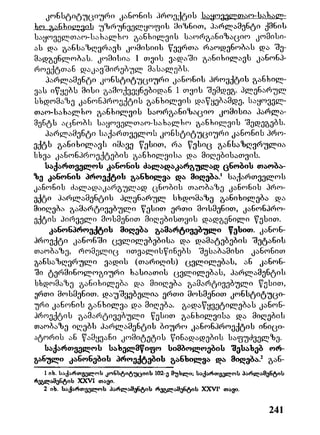 კონსტიტუციური კანონის პროექტის საყოველთაო-სახალ-
ხო განხილვის უზრუნველყოფის მიზნით, პარლამენტი ქმნის
საყოველთაო-სახალხო განხილვის საორგანიზაციო კომისი-
ას და განსაზღვრავს კომისიის წევრთა რაოდენობას და შე-
მადგენლობას. კომისია 1 თვის ვადაში განიხილავს კანონპ-
როექტთან დაკავშირებულ მასალებს.
პარლამენტი კონსტიტუციური კანონის პროექტის განხილ-
ვას იწყებს მისი გამოქვეყნებიდან 1 თვის შემდეგ. პლენარულ
სხდომაზე კანონპროექტის განხილვის დაწყებამდე, საყოველ-
თაო-სახალხო განხილვის საორგანიზაციო კომისია პარლა-
მენტს აცნობს საყოველთაო-სახალხო განხილვის შედეგებს.
პარლამენტი საქართველოს კონსტიტუციური კანონის პრო-
ექტს განიხილავს იმავე წესით, რა წესიც განსაზღვრულია
სხვა კანონპროექტების განხილვისა და მიღებისათვის.
საქართველოს კანონის ძალადაკარგულად ცნობის თაობა-
ზე კანონის პროექტის განხილვა და მიღება.¹ საქართველოს
კანონის ძალადაკარგულად ცნობის თაობაზე კანონის პრო-
ექტი პარლამენტის პლენარულ სხდომაზე განიხილება და
მიიღება გამარტივებული წესით ერთი მოსმენით, კანონპრო-
ექტის პირველი მოსმენით მიღებისთვის დადგენილი წესით.
კანონპროექტის მიღება გამარტივებული წესით. კანონ-
პროექტი კანონში ცვლილებებისა და დამატებების შეტანის
თაობაზე, რომელიც ითვალისწინებს შესაბამისი კანონით
განსაზღვრული ვადის (თარიღის) ცვლილებას, ან კანონ-
ში ტერმინოლოგიური ხასიათის ცვლილებას, პარლამენტის
სხდომაზე განიხილება და მიიღება გამარტივებული წესით,
ერთი მოსმენით. დაუშვებელია ერთი მოსმენით კონსტიტუცი-
ური კანონის განხილვა და მიღება. გადაწყვეტილებას კანონ-
პროექტის გამარტივებული წესით განხილვისა და მიღების
თაობაზე იღებს პარლამენტის ბიურო კანონპროექტის ინიცი-
ატორის ან წამყვანი კომიტეტის წინადადების საფუძველზე.
საქართველოს სახელმწიფო სიმბოლოების შესახებ ორ-
განული კანონების პროექტების განხილვა და მიღება.² გან-
1 იხ. საქართველოს კონსტიტუციის 102-ე მუხლი; საქართველოს პარლამენტის
რეგლამენტის XXVI თავი.
2 იხ. საქართველოს პარლამენტის რეგლამენტის XXVI¹ თავი.
241